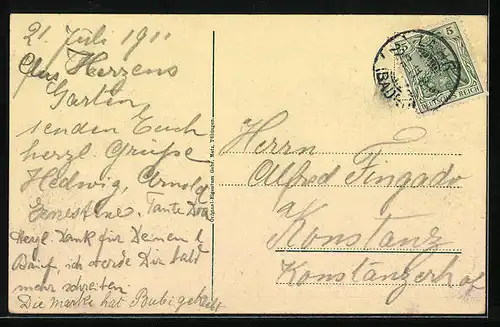 21. Juli 1911
Aus Herzens
Garten
senden Euch
herzl. Grüße
Hedwig, Arnold
Ernestine. Tante Dora
Herzl. Dank für Deinen l.
Brief, ich werde Dir bald
mehr schreiben
Die Marke hat Bubi geklebt
Original-Eigentum Gebr. Metz, Tübingen
5
DEUTSCHES REICH
(BADEN)
Herrn
Alfred Fingado
Konstanz
Konstanzerhof